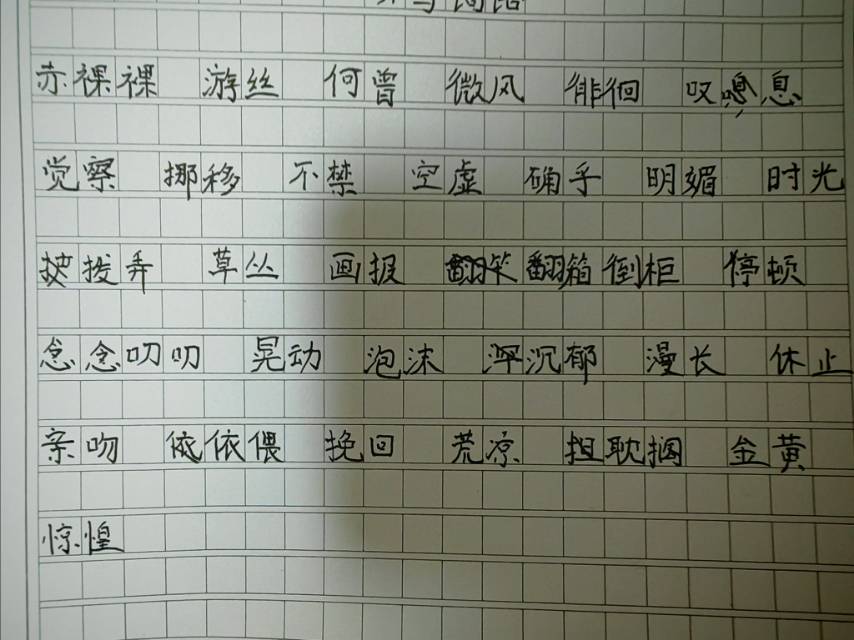 赤裸裸 游丝 何曾 微风 徘徊 叹息
觉察 挪移 不禁 空虚 确乎 明媚 时光
拨弄 草丛 画报 翻箱倒柜 停顿
念念叨叨 晃动 泡沫 沉郁 漫长 休止
亲吻 依偎 挽回 荒凉 耽搁 金黄
惊惶